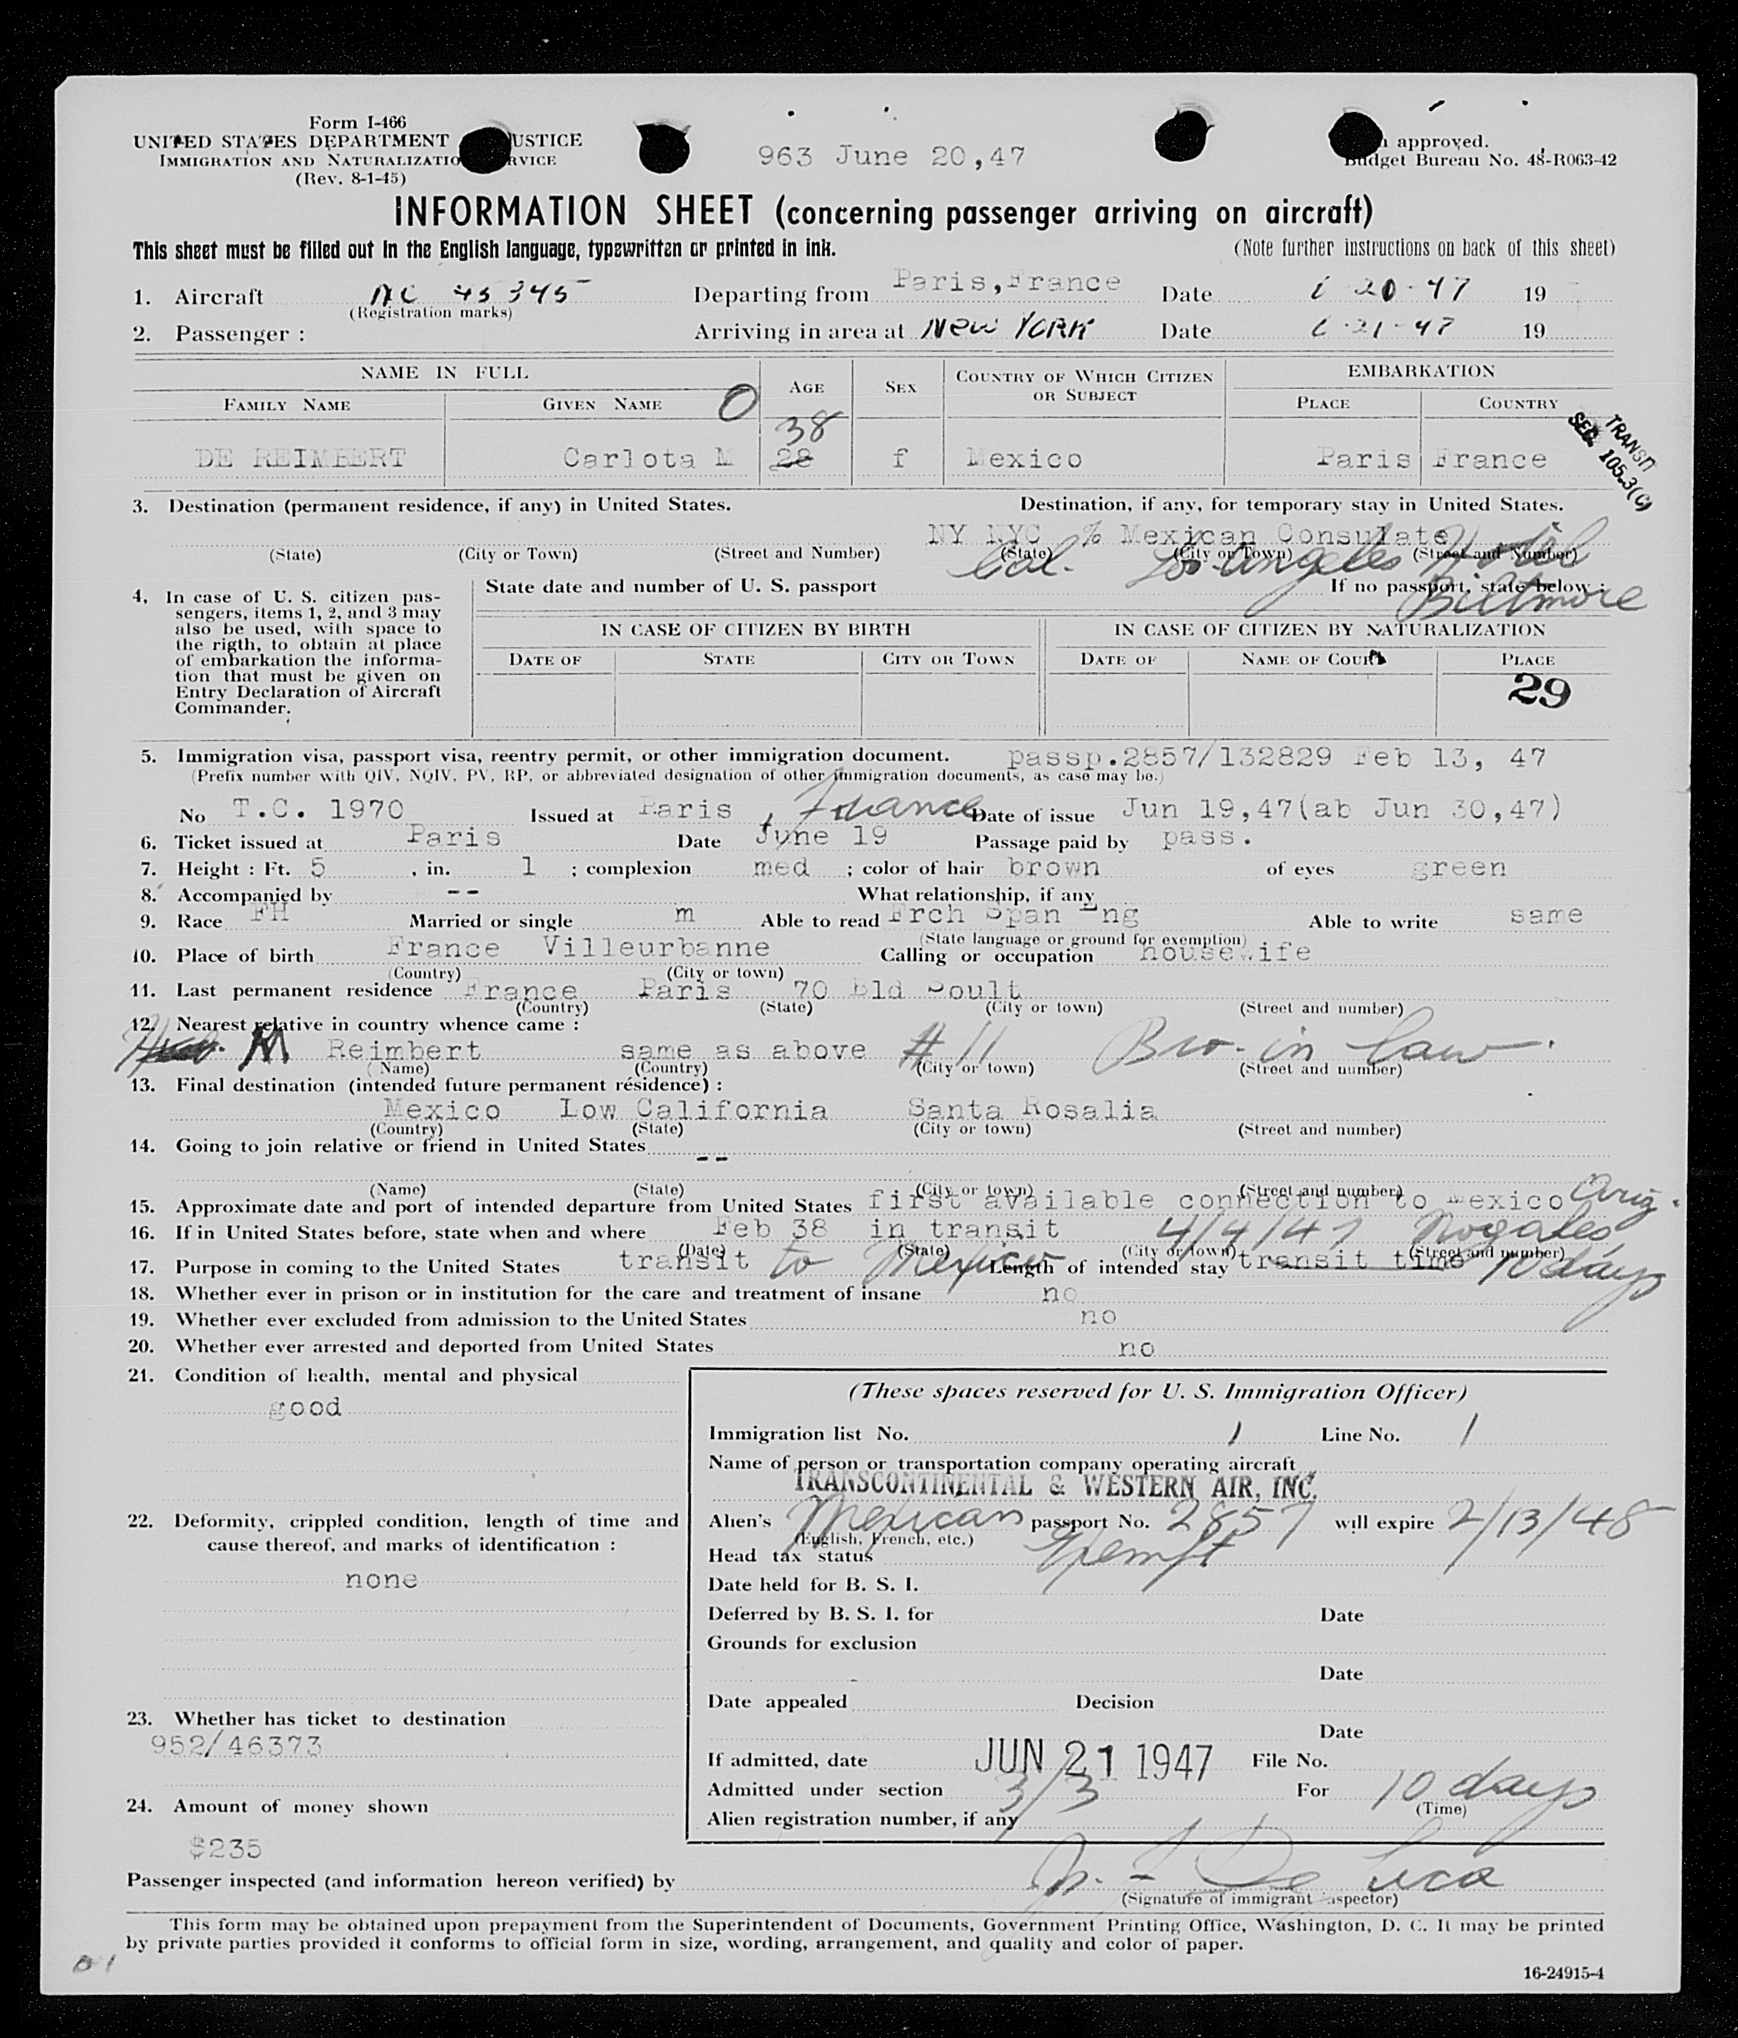 Form I-466
UNITED STATES DEPARTMENT USTICE
IMMIGRATION AND NATURALIZATIO RVICE
(Rev. 8-1-45)
963 June 20,47
approved.
Budget Bureau No. 48-R063-42
INFORMATION SHEET (concerning passenger arriving on aircraft)
This sheet must be filled out in the English language, typewritten or printed in ink. (Note further instructions on back of this sheet)
1. Aircraft NC 45345 Departing from Paris,France Date 6-20-47 19
(Registration marks)
2. Passenger : Arriving in area at NEW YORK Date 6-21-47 19
NAME IN FULL AGE SEX COUNTRY OF WHICH CITIZEN OR SUBJECT EMBARKATION
FAMILY NAME GIVEN NAME O PLACE COUNTRY
38
DE REIMBERT Carlota M 28 f Mexico Paris France
TRANSIT
SEC. 105.3(C)
3. Destination (permanent residence, if any) in United States. Destination, if any, for temporary stay in United States.
NY NYC % Mexican Consulate
(State) (City or Town) (Street and Number) (State) (City or Town) (Street and Number)
Cal. Los Angeles Hotel Biltmore
4. In case of U. S. citizen passengers, items 1, 2, and 3 may also be used, with space to the rigth, to obtain at place of embarkation the information that must be given on Entry Declaration of Aircraft Commander.
State date and number of U. S. passport If no passport, state below :
IN CASE OF CITIZEN BY BIRTH IN CASE OF CITIZEN BY NATURALIZATION
DATE OF STATE CITY OR TOWN DATE OF NAME OF COURT PLACE
29
5. Immigration visa, passport visa, reentry permit, or other immigration document. passp.2857/132829 Feb 13, 47
(Prefix number with QIV, NQIV, PV, RP, or abbreviated designation of other immigration documents, as case may be.)
No T.C. 1970 Issued at Paris , France Date of issue Jun 19,47(ab Jun 30,47)
6. Ticket issued at Paris Date June 19 Passage paid by pass.
7. Height : Ft. 5 , in. 1 ; complexion med ; color of hair brown of eyes green
8. Accompanied by -- What relationship, if any
9. Race FH Married or single m Able to read Frch Span Eng Able to write same
(State language or ground for exemption)
10. Place of birth France Villeurbanne Calling or occupation housewife
(Country) (City or town)
11. Last permanent residence France Paris 70 Bld Soult
(Country) (State) (City or town) (Street and number)
12. Nearest relative in country whence came :
M Reimbert same as above # 11 Bro-in law.
(Name) (Country) (City or town) (Street and number)
13. Final destination (intended future permanent résidence) :
Mexico Low California Santa Rosalia
(Country) (State) (City or town) (Street and number)
14. Going to join relative or friend in United States
--
(Name) (State) (City or town) (Street and number)
15. Approximate date and port of intended departure from United States first available connection to Mexico Ariz.
16. If in United States before, state when and where Feb 38 in transit 4/4/47 Nogales,
(Date) (State) (City or town) (Street and number)
17. Purpose in coming to the United States transit to Mexico Length of intended stay transit time 10 days
18. Whether ever in prison or in institution for the care and treatment of insane no
19. Whether ever excluded from admission to the United States no
20. Whether ever arrested and deported from United States no
21. Condition of health, mental and physical
good
(These spaces reserved for U. S. Immigration Officer)
Immigration list No. 1 Line No. 1
Name of person or transportation company operating aircraft
TRANSCONTINENTAL & WESTERN AIR, INC.
22. Deformity, crippled condition, length of time and cause thereof, and marks of identification :
none
Alien's Mexican passport No. 2857 will expire 2/13/48
(English, French, etc.)
Head tax status Exempt
Date held for B. S. I.
Deferred by B. S. I. for Date
Grounds for exclusion
Date
Date appealed Decision
Date
23. Whether has ticket to destination
952/46373
If admitted, date JUN 21 1947 File No.
Admitted under section 3/3 For 10 days
(Time)
Alien registration number, if any
24. Amount of money shown
$235
Passenger inspected (and information hereon verified) by De Luca
(Signature of immigrant inspector)
This form may be obtained upon prepayment from the Superintendent of Documents, Government Printing Office, Washington, D. C. It may be printed
by private parties provided it conforms to official form in size, wording, arrangement, and quality and color of paper.
16-24915-4